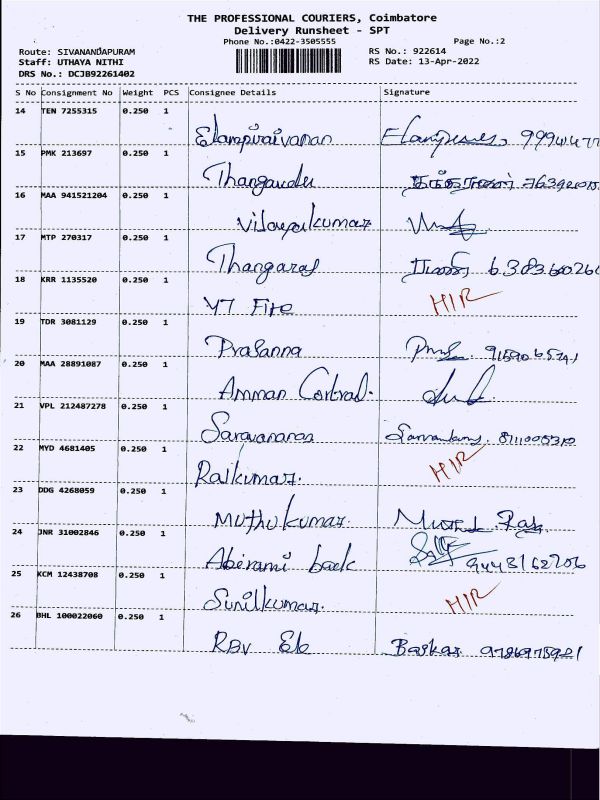 THE PROFESSIONAL COURIERS, Coimbatore
Delivery Runsheet - SPT
Phone No.:0422-3505555 Page No.:2
Route: SIVANANDAPURAM RS No.: 922614
Staff: UTHAYA NITHI RS Date: 13-Apr-2022
DRS No.: DCJB92261402
S No Consignment No Weight PCS Consignee Details Signature
14 TEN 7255315 0.250 1
Elampiraivanan
15 PMK 213697 0.250 1
Thangavelu
16 MAA 941521204 0.250 1
Vijayakumar
17 MTP 270317 0.250 1
Thangaraj
18 KRR 1135520 0.250 1
YT Fire HIR
19 TDR 3081129 0.250 1
Prasanna
20 MAA 28891087 0.250 1
Amman
21 VPL 212487278 0.250 1
Saravanana
22 MYD 4681405 0.250 1
Rajkumar. HIR
23 DDG 4268059 0.250 1
Muthukumar.
24 JNR 31002846 0.250 1
Abirami 9443162706
25 KCM 12438708 0.250 1
Sunilkumar. HIR
26 BHL 100022060 0.250 1
Baskar